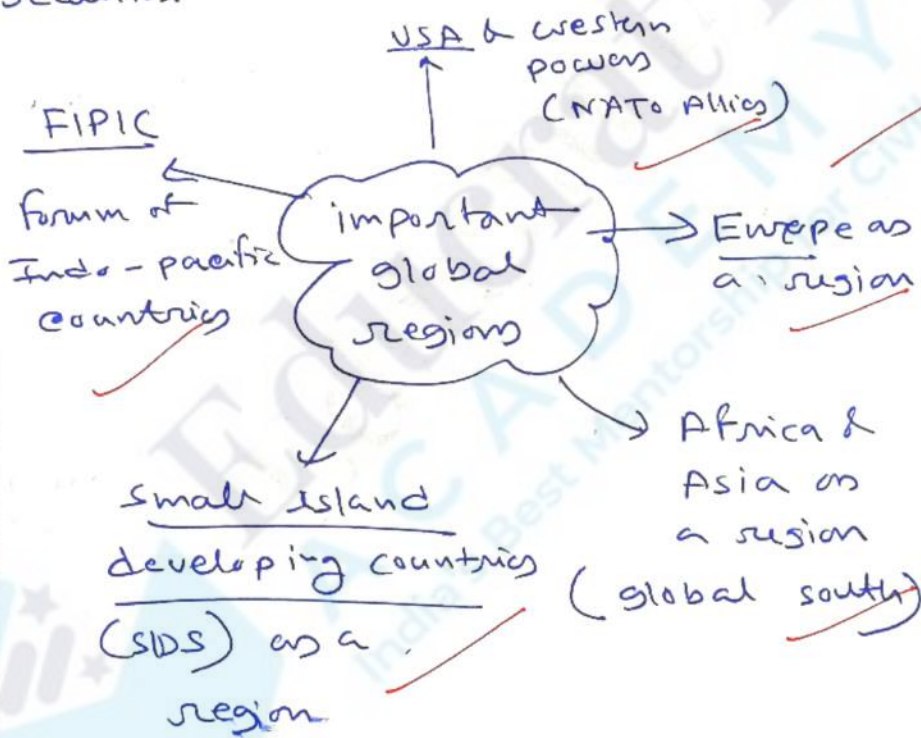 USA & western
powers
(NATO Allies)
FIPIC
forum of
Indo-pacific
countries
important
global
regions
Europe as
a region
Africa &
Asia as
a region
(global south)
small island
developing countries
(SIDS) as a
region
Educrat
ACADEMY
India's Best Mentorship for Civil